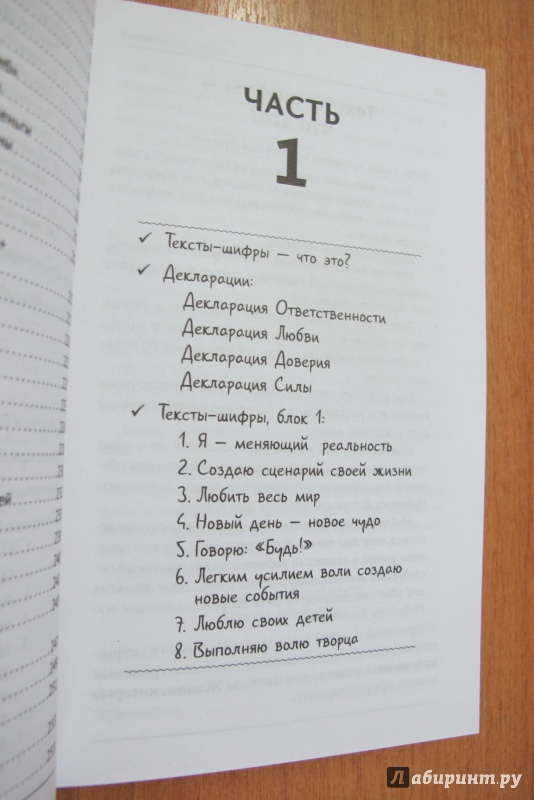 ЧАСТЬ
1
✓ Тексты-шифры — что это?
✓ Декларации:
Декларация Ответственности
Декларация Любви
Декларация Доверия
Декларация Силы
✓ Тексты-шифры, блок 1:
1. Я — меняющий реальность
2. Создаю сценарий своей жизни
3. Любить весь мир
4. Новый день — новое чудо
5. Говорю: «Будь!»
6. Легким усилием воли создаю
новые события
7. Люблю своих детей
8. Выполняю волю творца
Лабиринт.ру